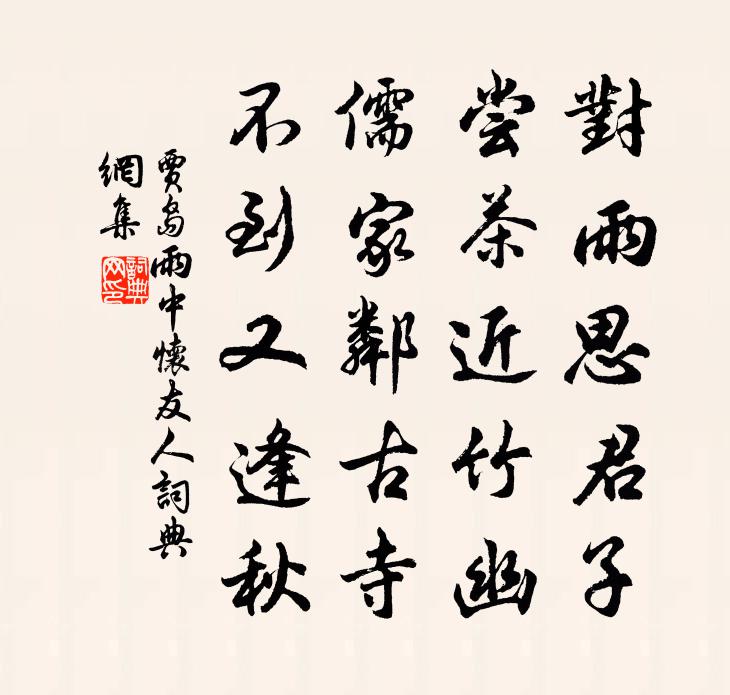 對雨思君子
嘗茶近竹幽
儒家鄰古寺
不到又逢秋
賈島雨中懷友人詞典
網集
詞典
网印